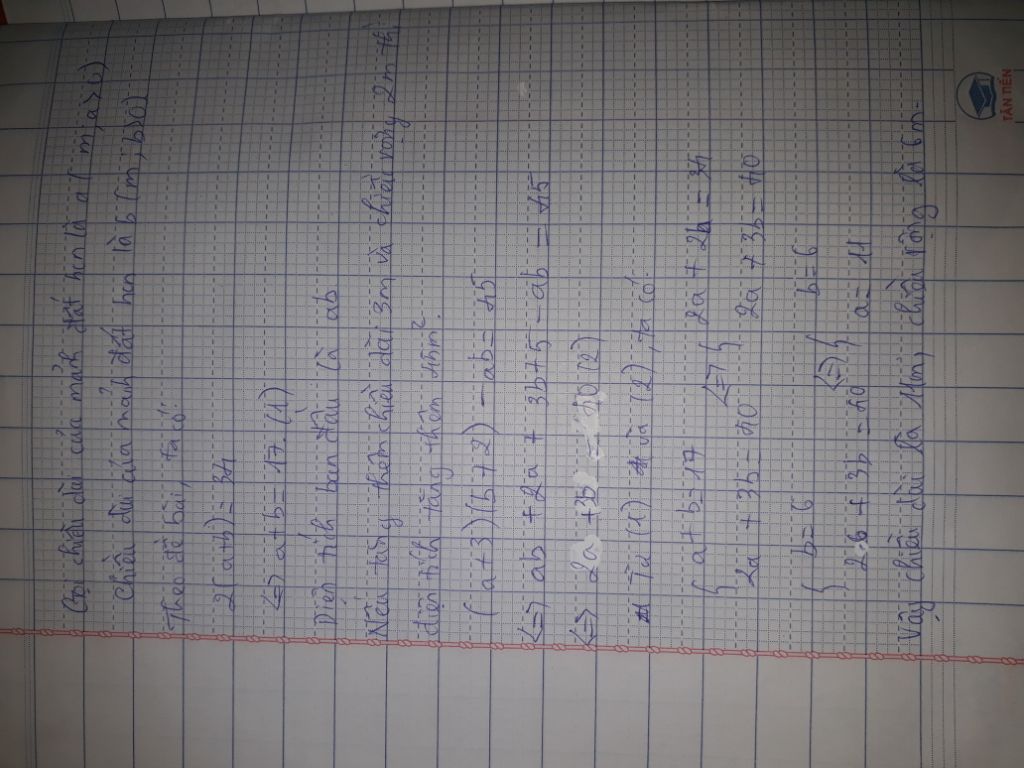 Gọi chiều dài của mảnh đất hcn là a (m, a>0)
Chiều dài của mảnh đất hcn là b (m, b>0)
Theo đề bài, ta có:
2(a+b) = 34
<=> a+b = 17 (1)
Diện tích ban đầu là ab
Nếu tăng thêm chiều dài 3m và chiều rộng 2m thì
diện tích tăng thêm 45m²
(a+3)(b+2) - ab = 45
<=> ab + 2a + 3b + 5 - ab = 45
<=> 2a + 3b = 40 (2)
Từ (1) và (2), ta có
{ a+b=17 <=> { 2a + 2b = 34
2a + 3b = 40 2a + 3b = 40
{ b=6 <=> { b=6
2.6 + 3b = 40 a = 11
Vậy chiều dài là 11m, chiều rộng là 6m.
TÂN TIẾN